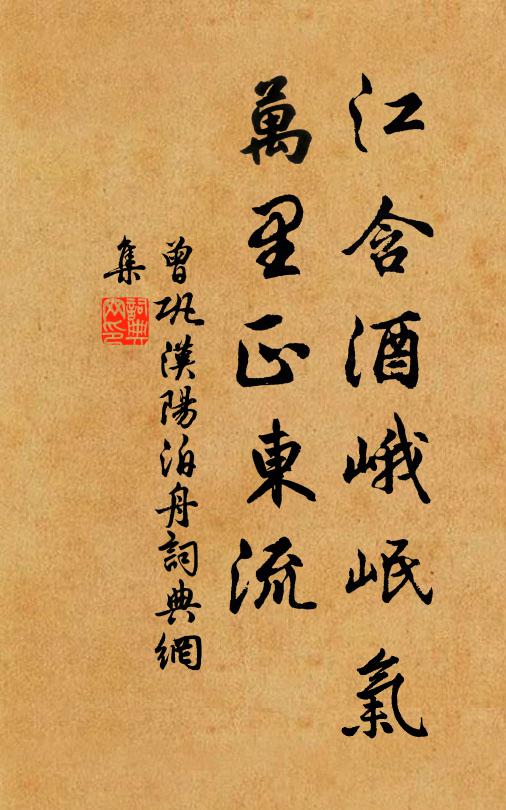 江含酒峨岷氣
萬里正東流
曾巩漢陽泊舟詞典網
集
詞典網印